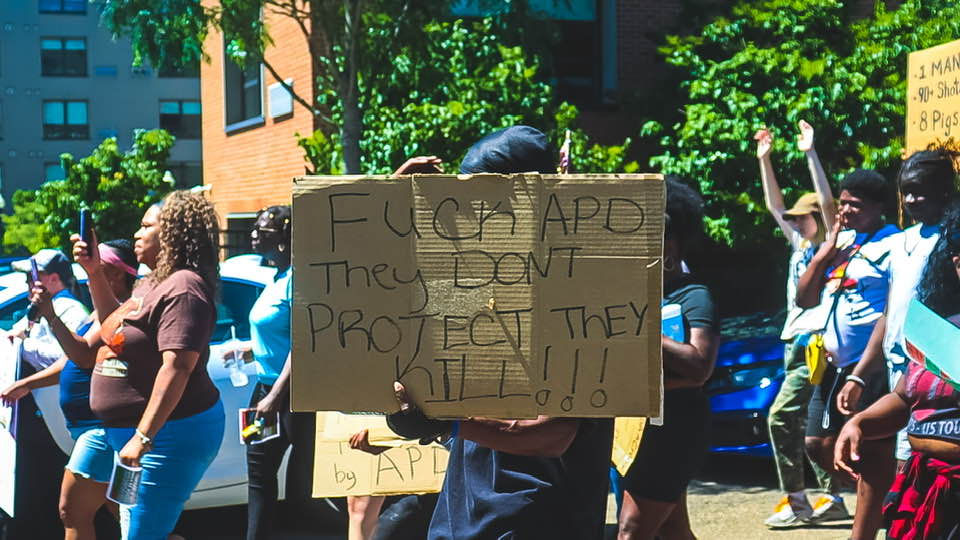 FUCK APD
They DONT
PROTECT THEY
KILL!!!
- 1 MAN
- 90+ Shot
- 8 Pigs
by APD
US TOU